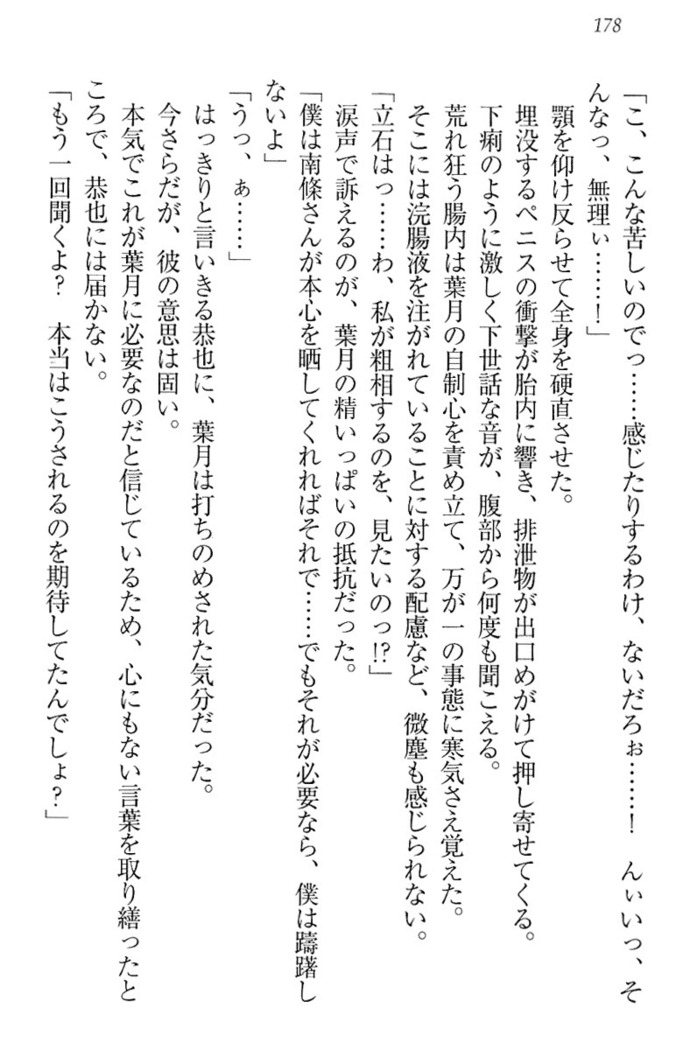 178
「こ、こんな苦しいのでっ……感じたりするわけ、ないだろぉ……！　んぃいっ、そ
んなっ、無理ぃ……！」
顎を仰け反らせて全身を硬直させた。
埋没するペニスの衝撃が胎内に響き、排泄物が出口めがけて押し寄せてくる。
下痢のように激しく下世話な音が、腹部から何度も聞こえる。
荒れ狂う腸内は葉月の自制心を責め立て、万が一の事態に寒気さえ覚えた。
そこには浣腸液を注がれていることに対する配慮など、微塵も感じられない。
「立石はっ……わ、私が粗相するのを、見たいのっ!?」
涙声で訴えるのが、葉月の精いっぱいの抵抗だった。
「僕は南條さんが本心を晒してくれればそれで……でもそれが必要なら、僕は躊躇し
ないよ」
「うっ、ぁ……」
はっきりと言いきる恭也に、葉月は打ちのめされた気分だった。
今さらだが、彼の意思は固い。
本気でこれが葉月に必要なのだと信じているため、心にもない言葉を取り繕ったと
ころで、恭也には届かない。
「もう一回聞くよ？　本当はこうされるのを期待してたんでしょ？」